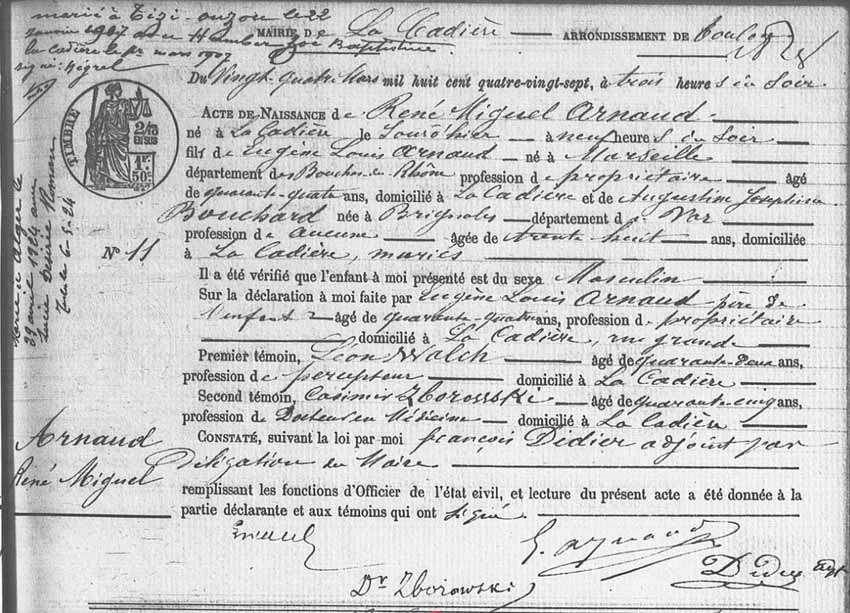 marié à Tizi-ouzou le 22
janvier 1907 avec Humbert Zoé Baptistine
la Cadière le 1er mars 1907
signé: Négrel
MAIRIE De La Cadière ARRONDISSEMENT DE Toulon
Du Vingt quatre Mars mil huit cent quatre-vingt-sept, à trois heures du Soir
ACTE DE NAISSANCE de René Miguel Arnaud
né à La Cadière le Jour d'hier à neuf heures du Soir
fils de Eugène Louis Arnaud né à Marseille
département des Bouches du Rhône profession de propriétaire âgé
de quarante-quatre ans, domicilié à La Cadière et de Augustine Joséphine
Bouchard née à Brignoles département du Var
profession de aucune âgée de trente huit ans, domiciliée
à La Cadière, mariés
Il a été vérifié que l'enfant à moi présenté est du sexe Masculin
Sur la déclaration à moi faite par Eugène Louis Arnaud père de
l'enfant âgé de quarante-quatre ans, profession de propriétaire
domicilié à La Cadière, rue grande
Premier témoin, Léon Walch âgé de quarante-deux ans,
profession de percepteur domicilié à La Cadière
Second témoin, Casimir Zborowski âgé de quarante cinq ans,
profession de Docteur en Médecine domicilié à La Cadière
CONSTATÉ, suivant la loi par moi françois Didier adjoint par
Délégation du Maire
remplissant les fonctions d'Officier de l'état civil, et lecture du présent acte a été donnée à la
partie déclarante et aux témoins qui ont signé.
E. Arnaud
Didier Adjt
Dr Zborowski
TIMBRE
2/10
EN SUS
1F.
50c
N° 11
Marié à Alger le
29 avril 1924 avec
Lucie Désirée Romain
6-5-24
Arnaud
René Miguel